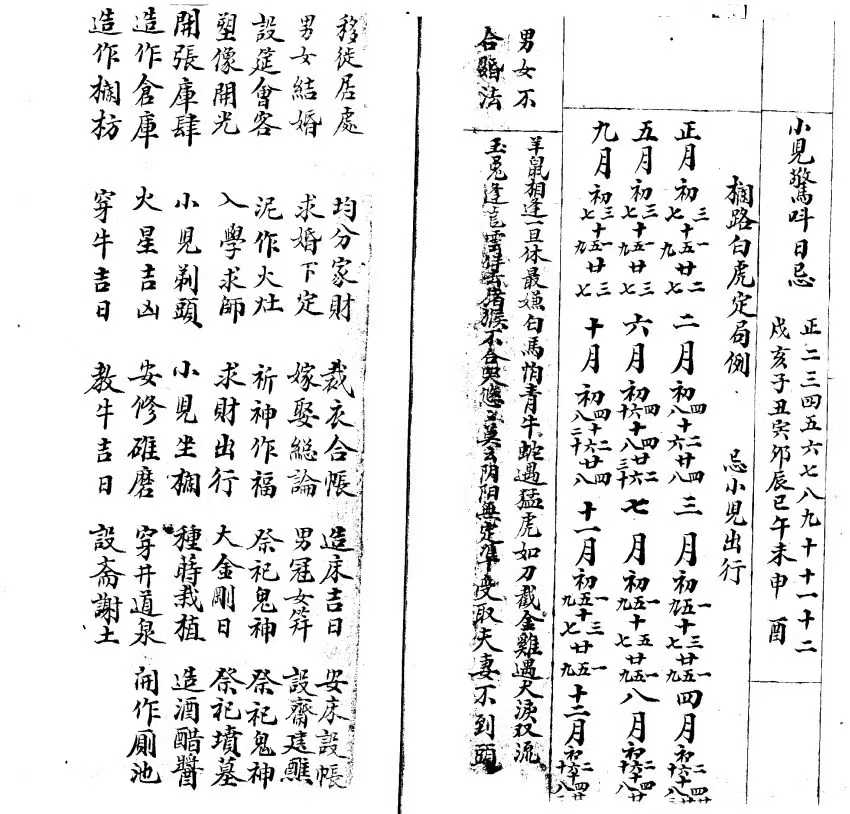 小見驚呌日忌
正二三四五六七八九十十一十二
戌亥子丑寅卯辰巳午未申酉
欄路白虎定局例 忌小見出行
正月初三七十一五九廿二七 二月初四八十二六廿四八 三月初一五九十三七廿一五九 四月初二六十十四八廿
五月初三七十一五九廿三七 六月初四六十十四八廿二六三十 七月初一五九十五七廿一五九 八月初二六十十四八廿
九月初三七十一五九廿三七 十月初四八十二六二十廿四八 十一月初一五九十三七廿一五九 十二月初二六十十四八廿
男女不
合婚法
羊鼠相逢一旦休最嫌白馬怕青牛蛇遇猛虎如刀截金雞遇犬淚双流
玉兎逢龍雲時去猪猴不合莫云阴阳無定準受取夫妻不到頭
移徙居處 均分家財 裁衣合帳 造床吉日 安床設帳
男女結婚 求婚下定 嫁娶総論 男冠女筓 設齋建醮
設筵會客 泥作火灶 祈神作福 祭祀鬼神 祭祀鬼神
塑像開光 入學求師 求財出行 大金剛日 祭祀墳墓
開張庫肆 小見剃頭 小見坐欄 種蒔栽植 造酒醋醬
造作倉庫 火星吉凶 安修碓磨 穿井道泉 開作厠池
造作欄枋 穿牛吉日 教牛吉日 設斋謝土